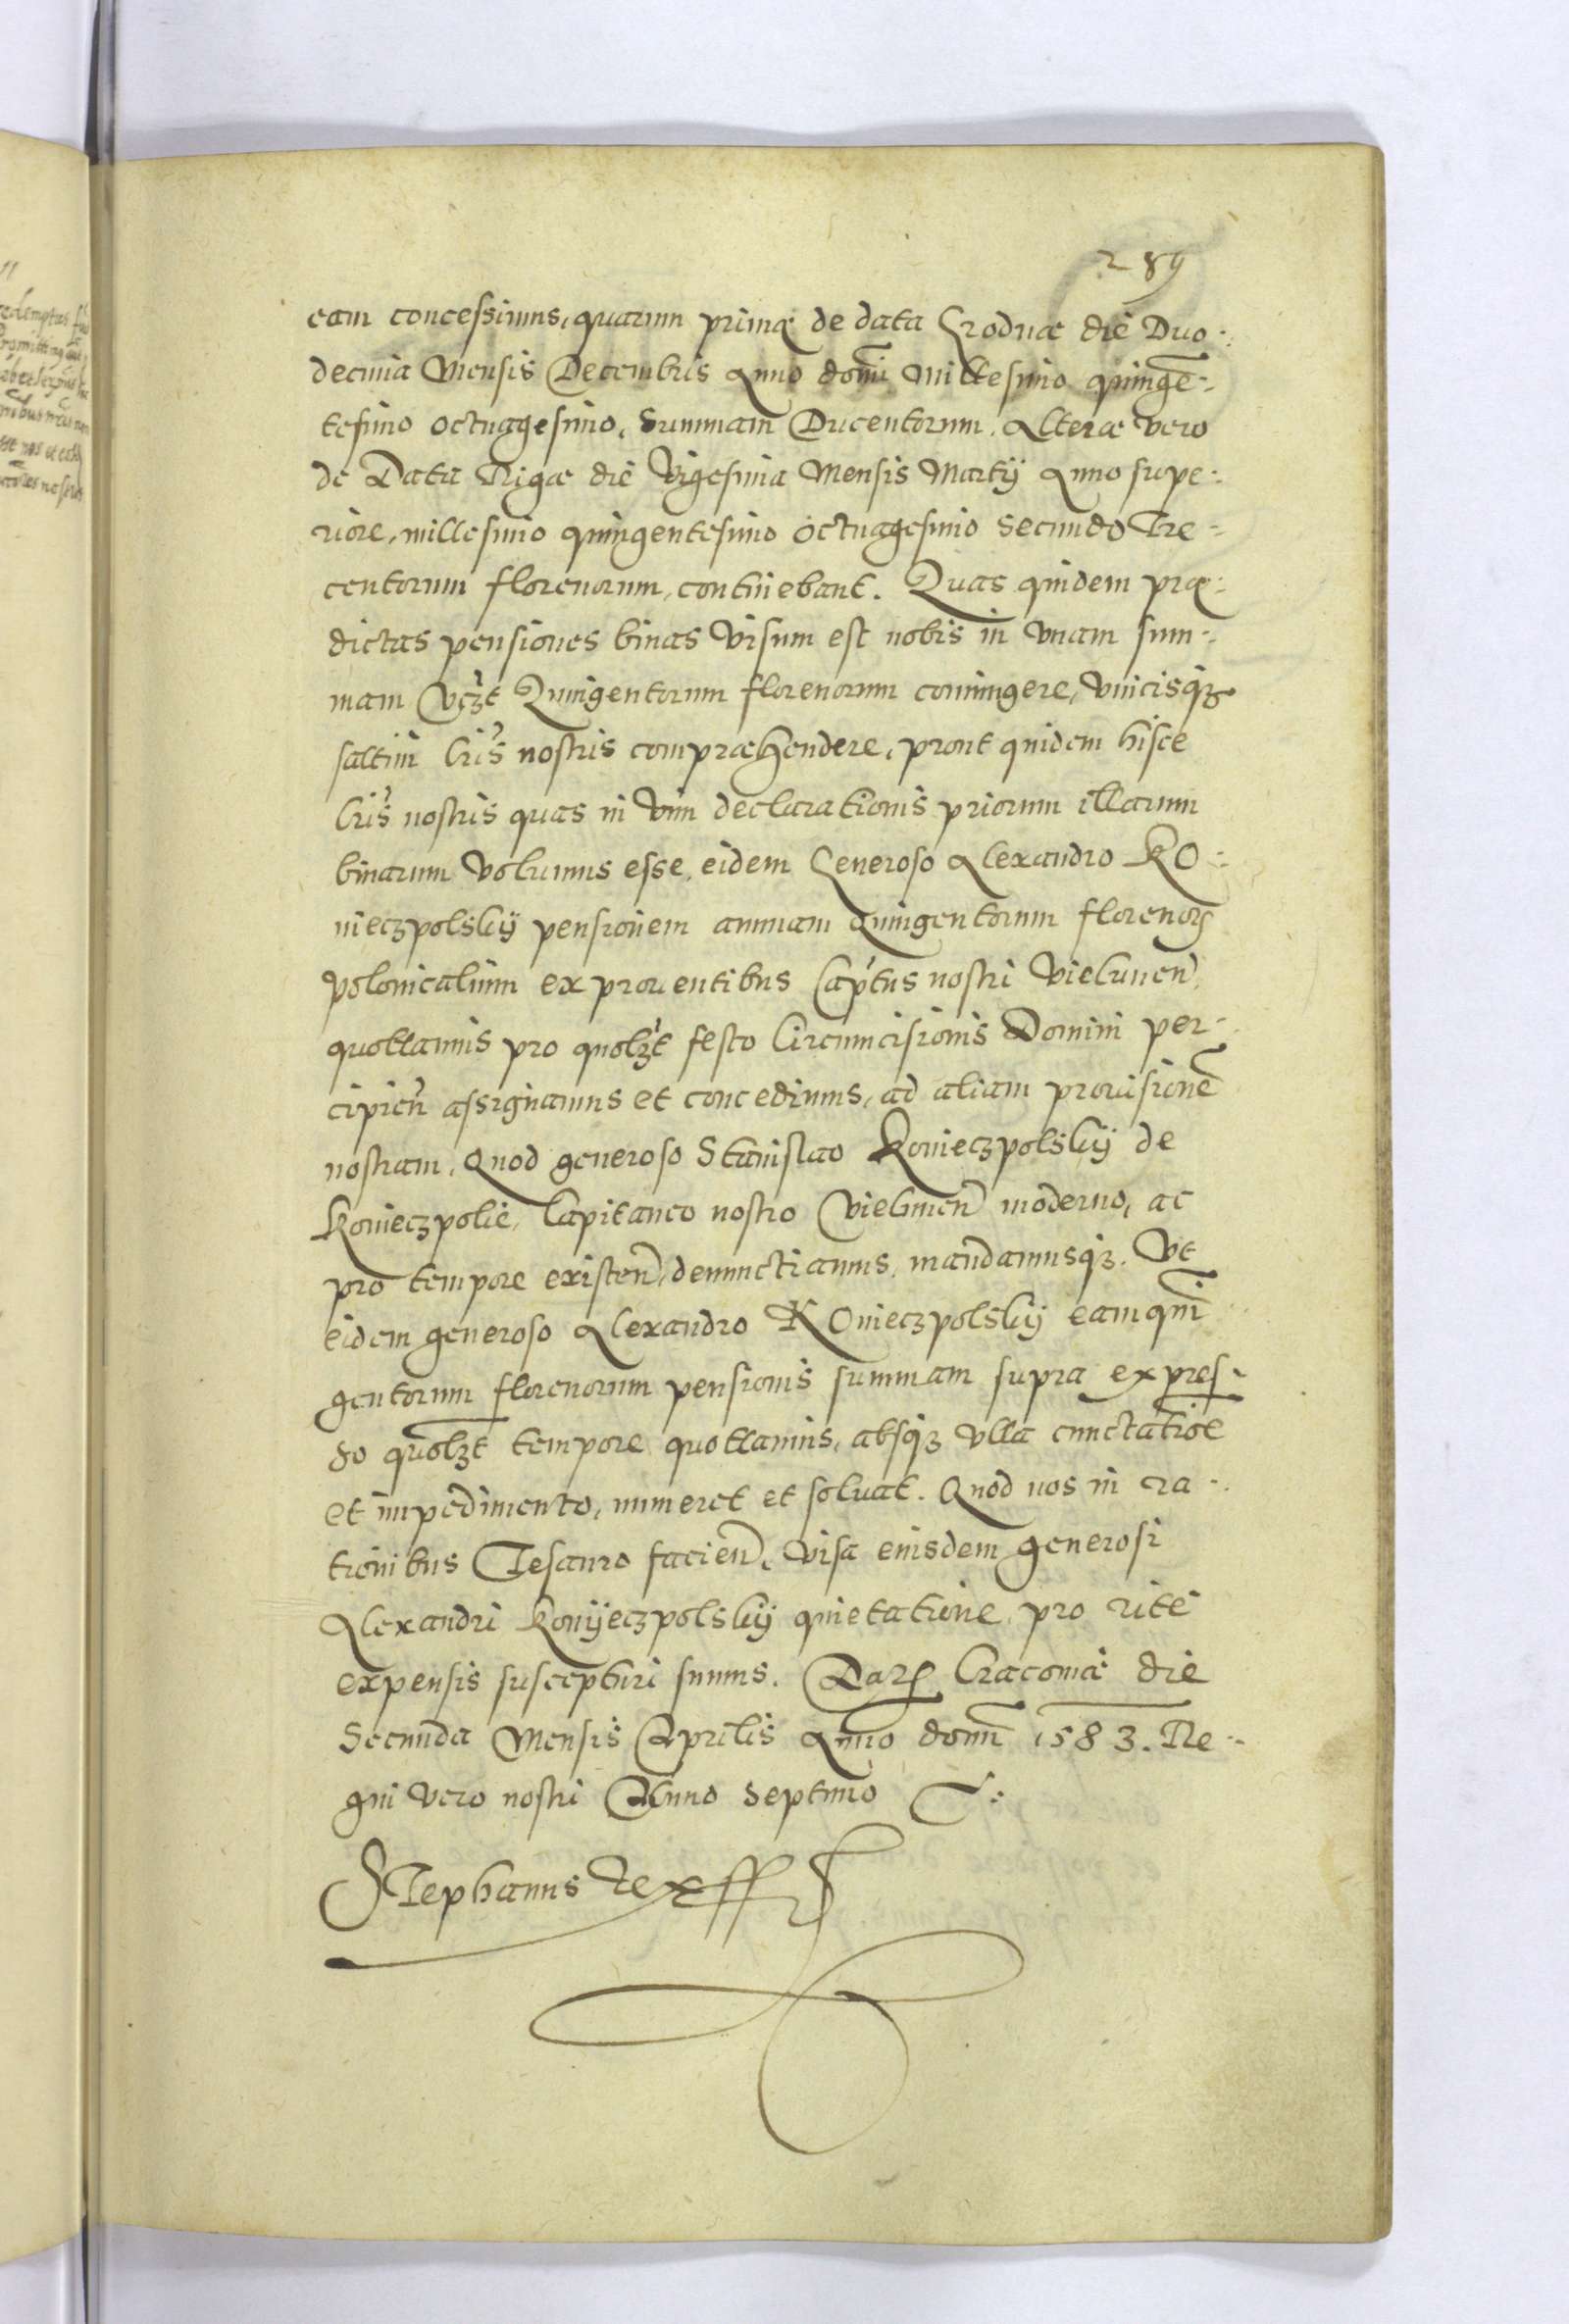 289
eam concessimus, quarum primę de data Grodnæ die Duo-
decima Mensis Decembris Anno domi Millesimo quinge-
tesimo octuagesimo, Summam Ducentorum. Alteræ vero
de Data Rigæ die Vigesima Mensis Martÿ Anno supe-
riore, millesimo quingentesimo octuagesimo Secundo Tre-
centorum florenorum, continebant. Quas quidem præ-
dictas pensiones binas visum est nobis in vnam sum-
mam vczt Quingentorum florenorum coniungere, vnicisqz
saltim lris nostris compræhendere, prout quidem hisce
lris nostris quas in vim declarationis priorum illarum
binarum volumus esse, eidem Generoso Alexandro KO-
nieczpolskÿ pensionem annuam Quingentorum florenorꝝ
polonicalium ex prouentibus Captus nostri Vielunen̄
quottannis pro quolzt festo Circumcisionis Domini per-
cipien̄ assignamus et concedimus, ad aliam prouisionē
nostram. Quod generoso Stanislao Konieczpolskÿ de
Konieczpolie, Capitaneo nostro Vielunen̄ moderno, ac
pro tempore existen̄, denunctiamus, mandamusqz. Vt
eidem generoso Alexandro KOnieczpolskÿ eam quin
gentorum florenorum pensionis summam supra expres-
so quolzt tempore quottannis, absqz vlla cunctatioe
et impedimento, numeret et soluat. Quod nos in ra-
tionibus Tesauro facien̄, visa eiusdem generosi
Alexandri Konÿeczpolskÿ quietatione, pro rite
expensis suscepturi sumus. Datꝝ Cracouiæ die
Secunda Mensis Aprilis Anno domi 1583. Re-
gni vero nostri Anno Septimo
Stephanus Rex ff